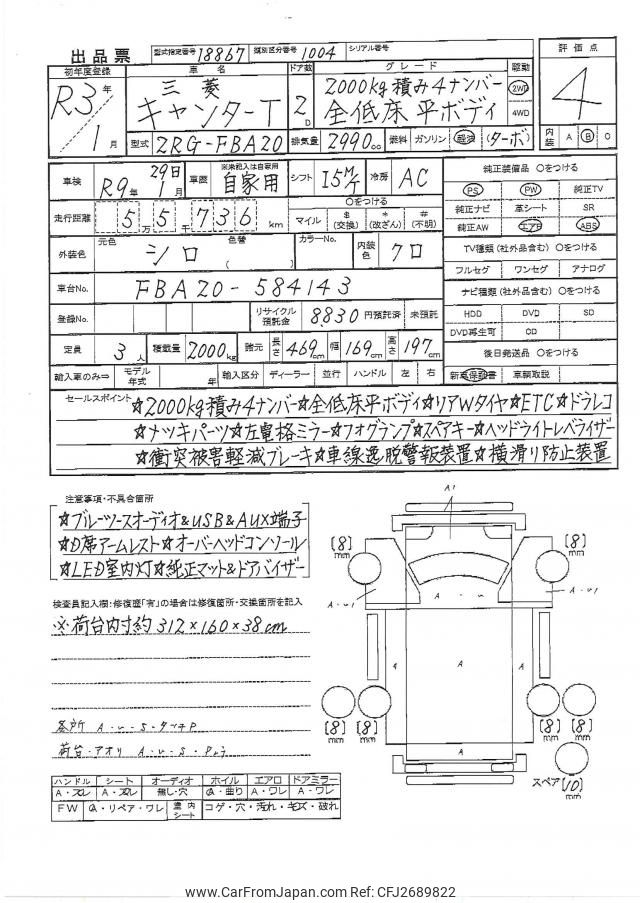 出品票 型式指定番号 18867 類別区分番号 1004 シリアル番号
初年度登録 車名 ドア数 グレード 駆動 評価点
R3年 三菱 2D 2000kg積み4ナンバー 2WD 4
1月 キャンターT 全低床 平ボディ 4WD
型式 2RG-FBA20 排気量 2990cc 燃料 ガソリン 軽油 (ターボ) 内装 A B C
車検 R9年 29日 1月 車歴 ※未記入は自家用 自家用 シフト I5M/T 冷房 AC 純正装備品 ○をつける
PS PW 純正TV
走行距離 5 5 7 3 6 km 万 千 ○をつける マイル $(交換) *(改ざん) #(不明) 純正ナビ 革シート SR
純正AW エアB ABS
外装色 元色 シロ 色替 ( ) カラーNo. 内装色 クロ TV種類(社外品含む) ○をつける
フルセグ ワンセグ アナログ
車台No. FBA20-584143 ナビ種類(社外品含む) ○をつける
登録No. リサイクル預託金 8830 円預託済 未預託 HDD DVD SD
DVD再生可 CD
定員 3人 積載量 2000kg 諸元 長さ 469cm 幅 169cm 高さ 197cm 後日発送品 ○をつける
輸入車のみ⇒ モデル年式 年 輸入区分 ディーラー 並行 ハンドル 左 右 新車保証書 車輌取説
セールスポイント ☆2000kg積み4ナンバー☆全低床平ボディ☆リアWタイヤ☆ETC☆ドラレコ
☆メッキパーツ☆左電格ミラー☆フォグランプ☆スペアキー☆ヘッドライトレベライザー
☆衝突被害軽減ブレーキ☆車線逸脱警報装置☆横滑り防止装置
注意事項・不具合箇所
☆ブルーツースオーディオ&USB&AUX端子
☆D席アームレスト☆オーバーヘッドコンソール
☆LED室内灯☆純正マット&ドアバイザー
検査員記入欄:修復歴「有」の場合は修復箇所・交換箇所を記入
※荷台内寸約312×160×38cm
各所 A・U・S・タッチP
荷台・アオリ A・U・S・
A1
[8]mm [8]mm
A・U1 A・U A・U1
A A A
[8]mm [8]mm [8]mm [8]mm
A
スペア[10]mm
ハンドル シート オーディオ ホイル エアロ ドアミラー
A・スレ A・スレ 無し・穴 A・曲り A・ワレ A・ワレ
FW A・リペア・ワレ 室内シート コゲ・穴・汚れ・キズ・破れ
www.CarFromJapan.com Ref: CFJ2689822